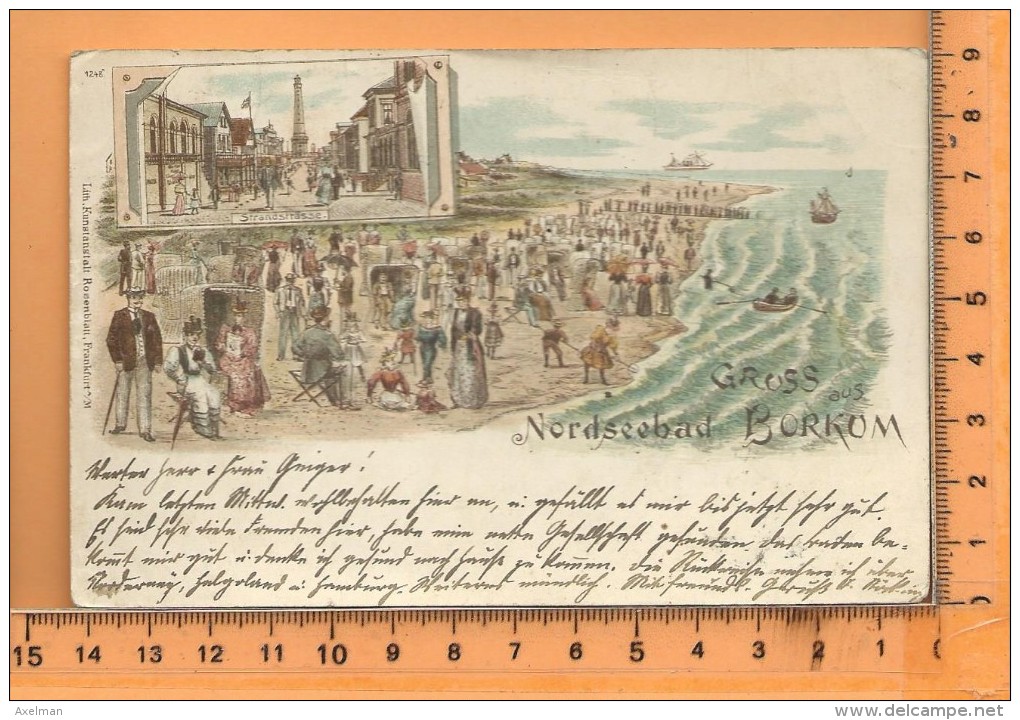 1248
Strandstrasse.
Lith. Kunstanstalt Rosenblatt, Frankfurt a/M
Gruss aus
Nordseebad Borkum
Werter Herr & Frau Geiger!
Kam letzten Mittw. wohlbehalten hier an, u. gefällt es mir bis jetzt sehr gut.
Es sind sehr viele Fremden hier, habe eine nette Gesellschaft gefunden. Das baden be-
kommt mir gut u. denke ich gesund nach Hause zu kommen, die Rückreise nehme ich über
Norderney, Helgoland u. Hamburg. Weiteres mündlich. Mit freundl.
15 14 13 12 11 10 9 8 7 6 5 4 3 2 1
9
8
7
6
5
4
3
2
1
Axelman
www.delcampe.net